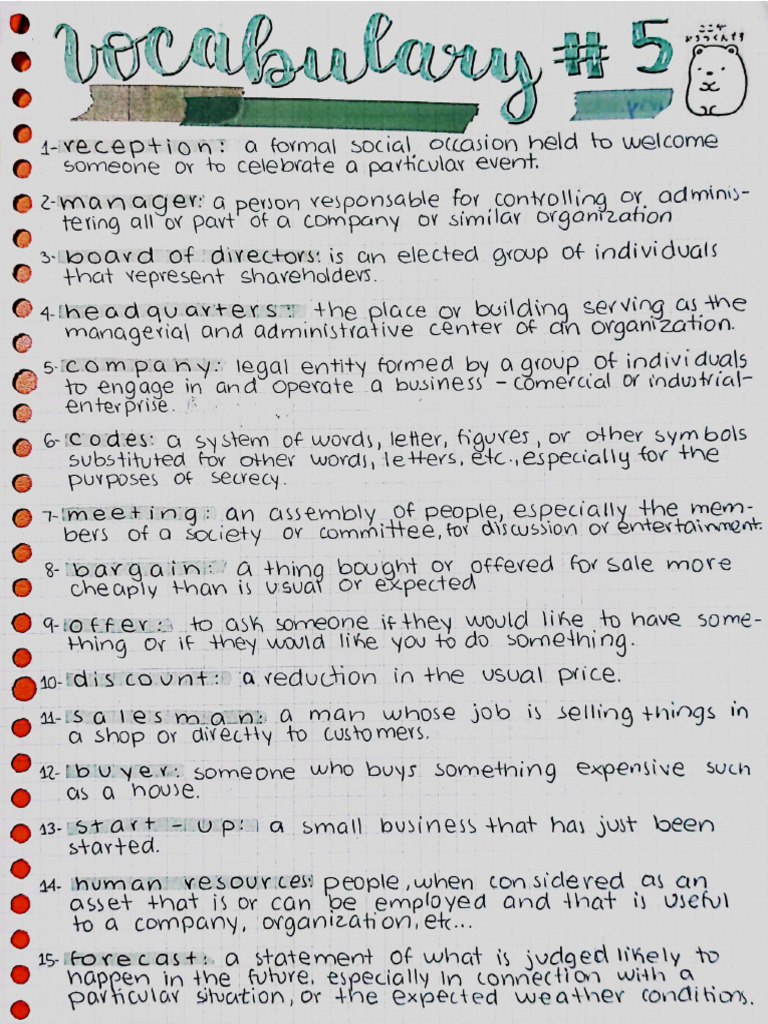 vocabulary #5
ここが
おちつくんです
1- reception: a formal social occasion held to welcome
someone or to celebrate a particular event.
2- manager: a person responsible for controlling or adminis-
tering all or part of a company or similar organization
3- board of directors: is an elected group of individuals
that represent shareholders.
4- headquarters: the place or building serving as the
managerial and administrative center of an organization.
5- company: legal entity formed by a group of individuals
to engage in and operate a business - comercial or industrial-
enterprise.
6- codes: a system of words, letter, figures, or other symbols
substituted for other words, letters, etc., especially for the
purposes of secrecy.
7- meeting: an assembly of people, especially the mem-
bers of a society or committee, for discussion or entertainment.
8- bargain: a thing bought or offered for sale more
cheaply than is usual or expected
9- offer: to ask someone if they would like to have some-
thing or if they would like you to do something.
10- discount: a reduction in the usual price.
11- salesman: a man whose job is selling things in
a shop or directly to customers.
12- buyer: someone who buys something expensive such
as a house.
13- start-up: a small business that has just been
started.
14- human resources: people, when considered as an
asset that is or can be employed and that is useful
to a company, organization, etc...
15- forecast: a statement of what is judged likely to
happen in the future, especially in connection with a
particular situation, or the expected weather conditions.